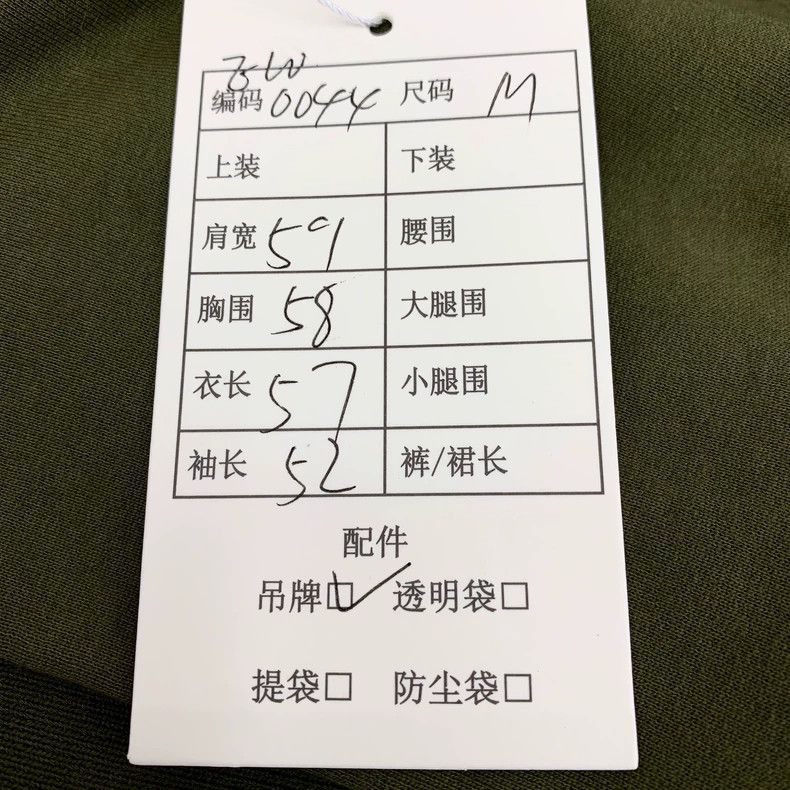 编码 0044 尺码 M
上装 下装
肩宽 59 腰围
胸围 58 大腿围
衣长 57 小腿围
袖长 52 裤/裙长
配件
吊牌☑ 透明袋□
提袋□ 防尘袋□